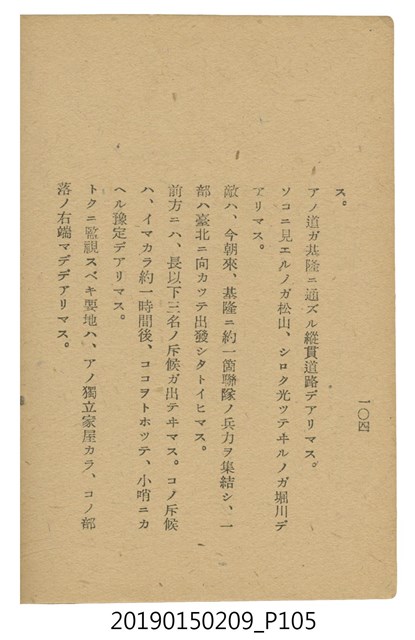 一〇四
ス。
アノ道ガ基隆ニ通ズル縱貫道路デアリマス。
ソコニ見エルノガ松山、シロク光ツテヰルノガ堀川デ
アリマス。
敵ハ、今朝來、基隆ニ約一箇聯隊ノ兵力ヲ集結シ、一
部ハ臺北ニ向カツテ出發シタトイヒマス。
前方ニハ、長以下三名ノ斥候ガ出テヰマス。コノ斥候
ハ、イマカラ約一時間後、ココヲトホツテ、小哨ニカ
ヘル豫定デアリマス。
トクニ監視スベキ要地ハ、アノ獨立家屋カラ、コノ部
落ノ右端マデデアリマス。
20190150209_P105